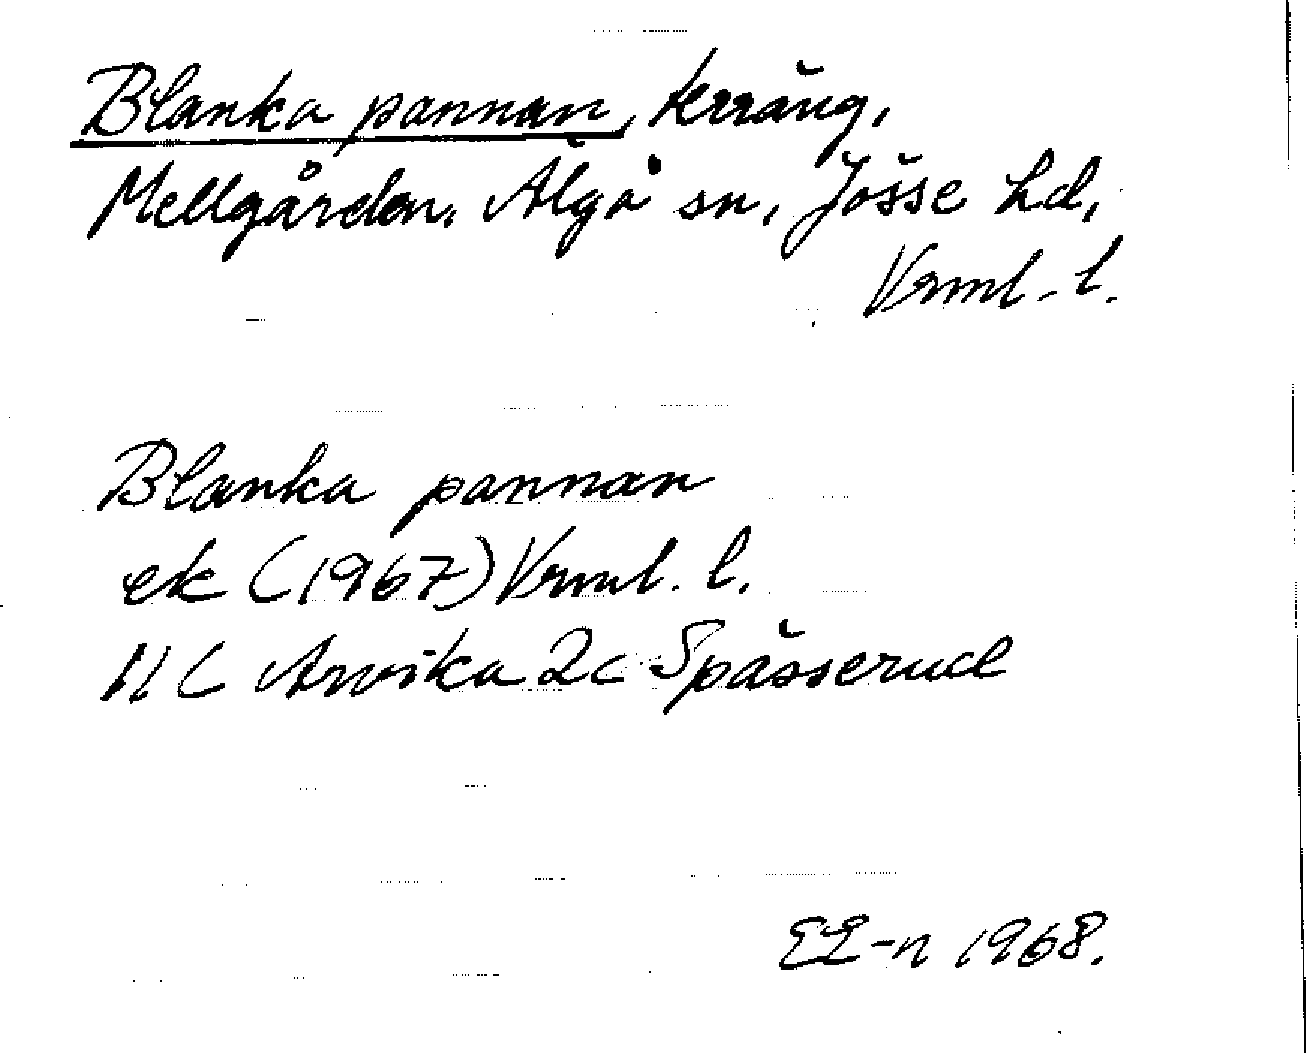 Blanka pannan, terräng,
Mellgården, Älgå sn, Jösse hd,
Vrml. l.
Blanka pannan
ek (1967) Vrml. l.
11 C Arvika 2c Spässerud
EL-n 1968.